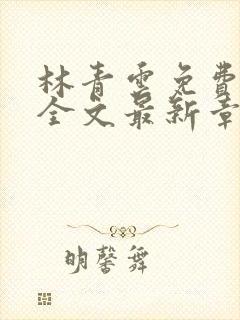 林青云免费
全文最新章
明馨舞